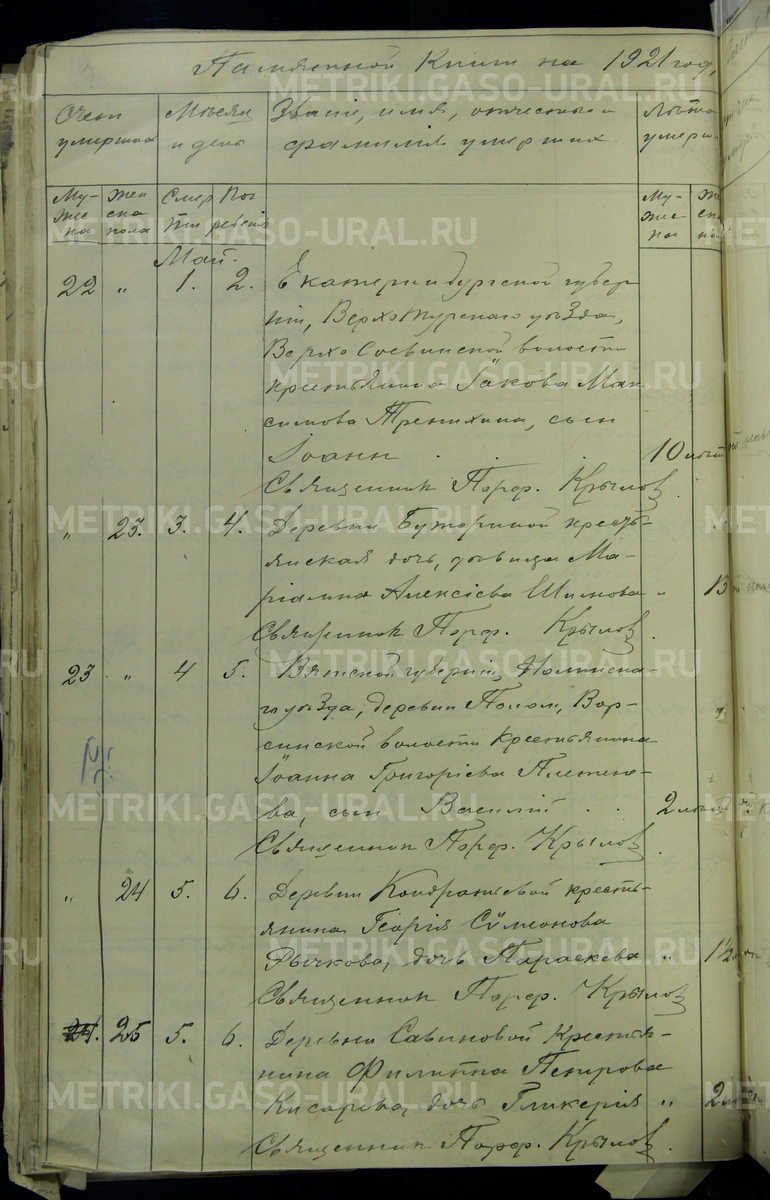 Памятной Книги на 1921 год,
Счет умерших
Месяц и день
Званіе, имя, отчество и фамилія умерших
Лѣта умерш.
Мужска
Женска пола
Смерти
Погребенія
Мужска
Май.
22 " 1. 2. Екатеринбургской губер
ніи, Верхотурскаго уѣзда,
Верхо Сосвинской волости
крестьянина Іакова Мак
симова Тренихина, сын
Іоанн . . 10 лѣт
Священник Порф. Крылов
" 23. 3. 4. Деревни Буториной кресть-
янская дочь, дѣвица Ма-
ріамна Алексіева " 13
Священник Порф. Крылов
23 " 4 5. Вятской губерніи, Нолинска-
го уѣзда, деревни Полом, Вор-
синской волости крестьянина
Іоанна Григоріева Плетене-
ва, сын Василій . . 2
Священник Порф. Крылов
" 24 5. 6. Деревни Кондратьевой кресть-
янина Георгія Сѵмеонова
Рычкова, дочь Параскева " 1½
Священник Порф. Крылов
25 5. 6. Деревни Савиновой Крестья-
нина Филиппа Петрова
Кисарева, дочь Гликерія " 2
Священник Порф. Крылов
METRIKI.GASO-URAL.RU